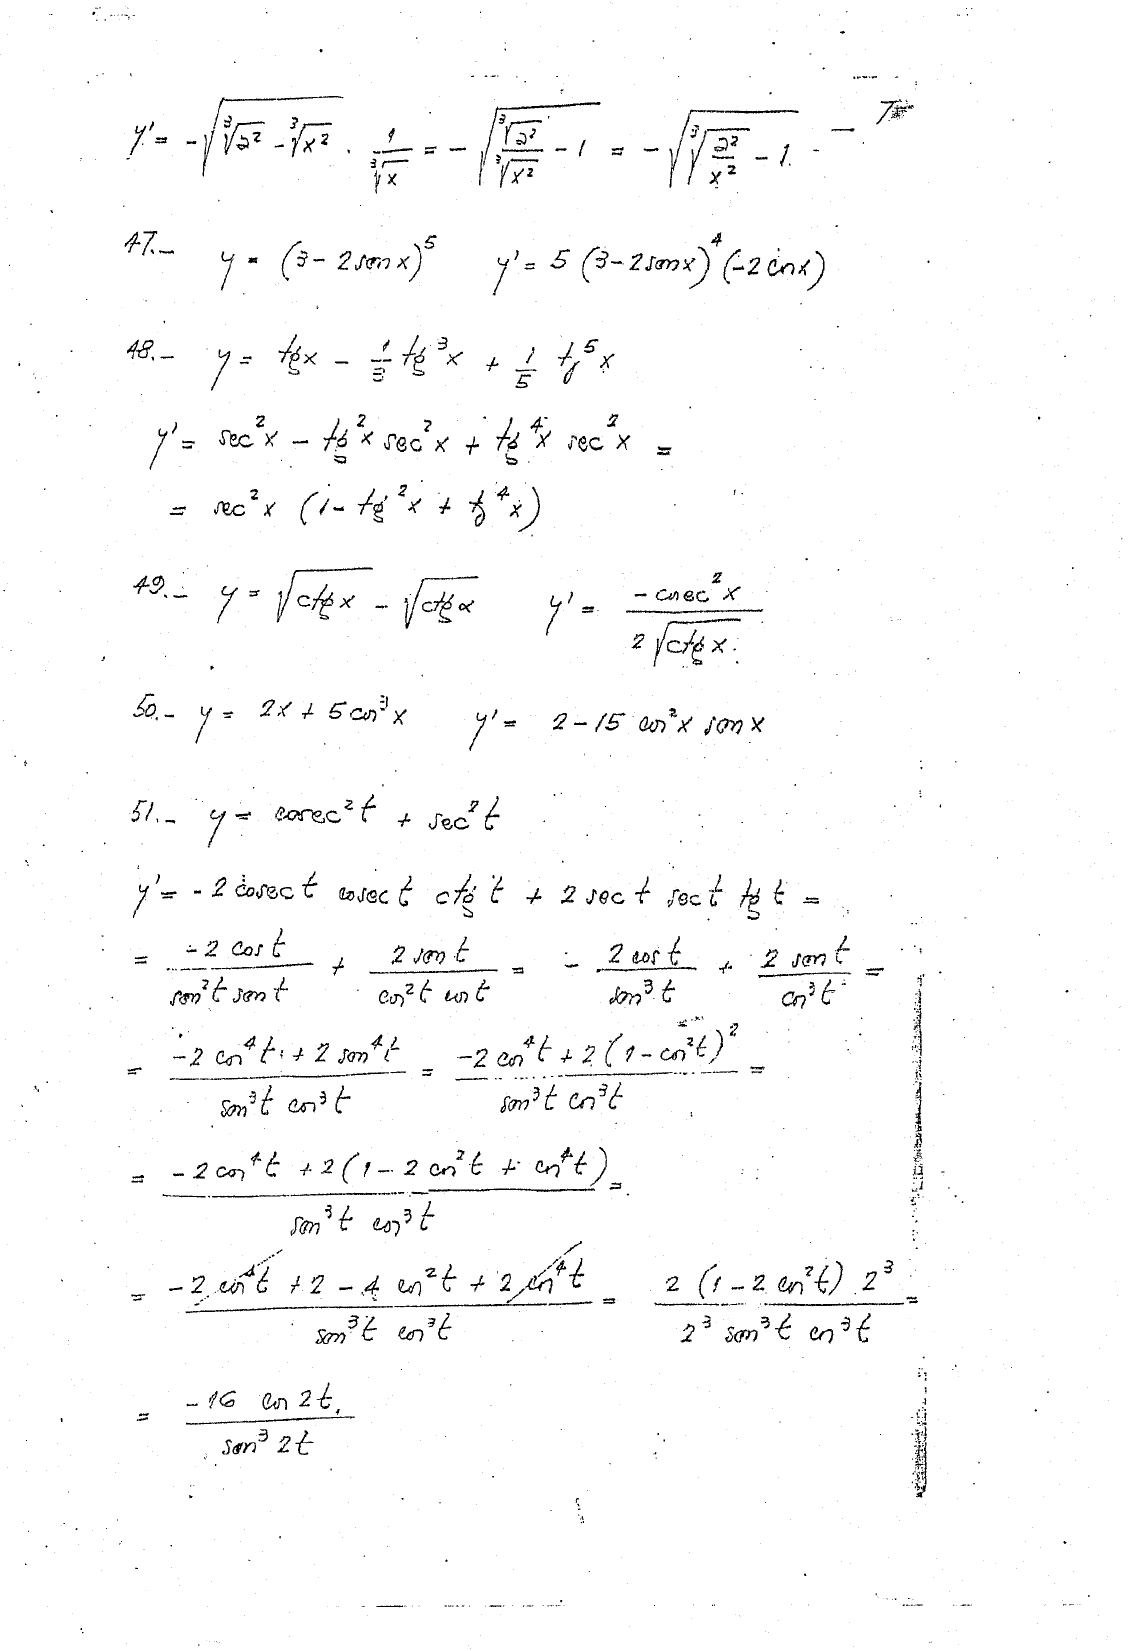 7
y' = -√(∛a² - ∛x²) · 1/∛x = -√(∛a²/∛x² - 1) = -√(∛(a²/x²) - 1)
47.- y = (3 - 2 sen x)⁵ y' = 5 (3 - 2 sen x)⁴ (-2 cos x)
48.- y = tg x - 1/3 tg³x + 1/5 tg⁵x
y' = sec²x - tg²x sec²x + tg⁴x sec²x =
= sec²x (1 - tg²x + tg⁴x)
49.- y = √(ctg x) - √(ctg α) y' = -cosec²x / 2√(ctg x)
50.- y = 2x + 5 cos³x y' = 2 - 15 cos²x sen x
51.- y = cosec²t + sec²t
y' = -2 cosec t cosec t ctg t + 2 sec t sec t tg t =
= -2 cos t / sen²t sen t + 2 sen t / cos²t cos t = - 2 cos t / sen³t + 2 sen t / cos³t =
= -2 cos⁴t + 2 sen⁴t / sen³t cos³t = -2 cos⁴t + 2 (1 - cos²t)² / sen³t cos³t =
= -2 cos⁴t + 2 (1 - 2 cos²t + cos⁴t) / sen³t cos³t =
= -2 cos⁴t + 2 - 4 cos²t + 2 cos⁴t / sen³t cos³t = 2 (1 - 2 cos²t) 2³ / 2³ sen³t cos³t =
= -16 cos 2t / sen³ 2t